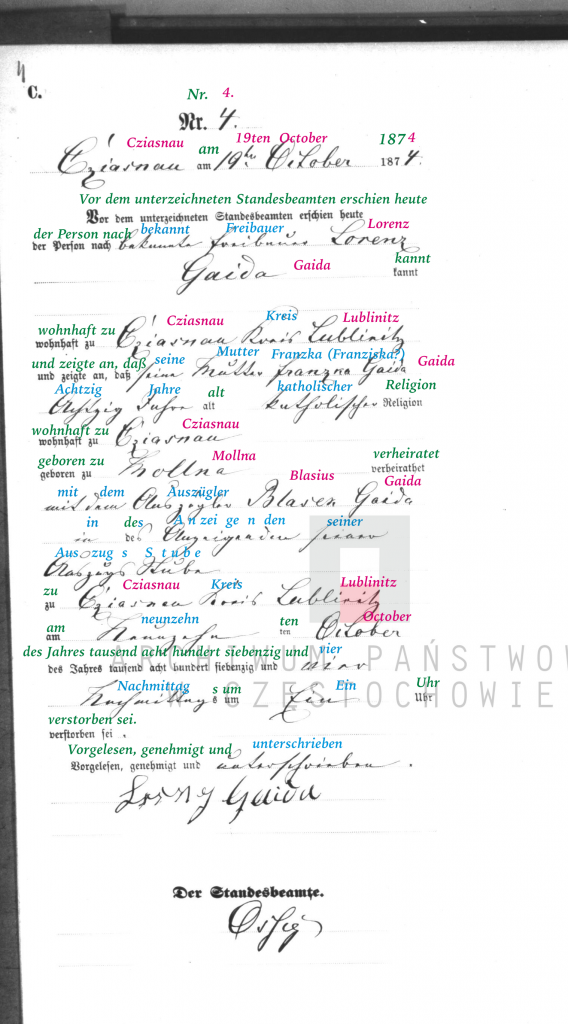 C.
Nr. 4.
Nr. 4.
Cziasnau am 19ten October 1874
Cziasnau am 19ten October 1874.
Vor dem unterzeichneten Standesbeamten erschien heute
Vor dem unterzeichneten Standesbeamten erschien heute
der Person nach bekannt Freibauer Lorenz
der Person nach bekannt Freibauer Lorenz
Gaida kannt
Gaida kannt
Cziasnau Kreis Lublinitz
wohnhaft zu
wohnhaft zu Cziasnau Kreis Lublinitz
und zeigte an, daß seine Mutter Franzka (Franziska?) Gaida
und zeigte an, daß seine Mutter Franzka Gaida
Achtzig Jahre alt katholischer Religion
Achtzig Jahre alt katholischer Religion
wohnhaft zu Cziasnau
wohnhaft zu Cziasnau
geboren zu Mollna verheiratet
geboren zu Mollna verheirathet
mit dem Auszügler Blasius Gaida
mit dem Auszügler Blasen Gaida
in des Anzeigenden seiner
in des Anzeigenden seiner
Auszugs Stube
Auszugs Stube
zu Cziasnau Kreis Lublinitz
zu Cziasnau Kreis Lublinitz
am neunzehn ten October
am Neunzehn ten October
des Jahres tausend acht hundert siebenzig und vier
des Jahres tausend acht hundert siebenzig und vier
ARCHIWUM PAŃSTWOW
Nachmittag s um Ein Uhr
Nachmittag s um Ein Uhr
W CZĘSTOCHOWIE
verstorben sei.
verstorben sei.
Vorgelesen, genehmigt und unterschrieben
Vorgelesen, genehmigt und unterschrieben.
Gaida
Der Standesbeamte.